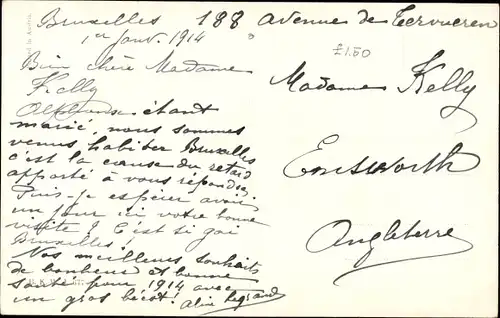 Bruxelles 188 avenue de Tervueren
1er Janv. 1914
£1.50
Bien chère Madame
Kelly
Alphonse étant
marié, nous sommes
venus habiter Bruxelles
c'est la cause du retard
apporté à vous répondre.
Puis-je espérer avoir
un jour ici votre bonne
visite? C'est si gai
Bruxelles!
Nos meilleurs souhaits
de bonheur et bonne
santé pour 1914 avec
un gros bécot! Aline Legrand
Madame Kelly
Emsworth
Angleterre